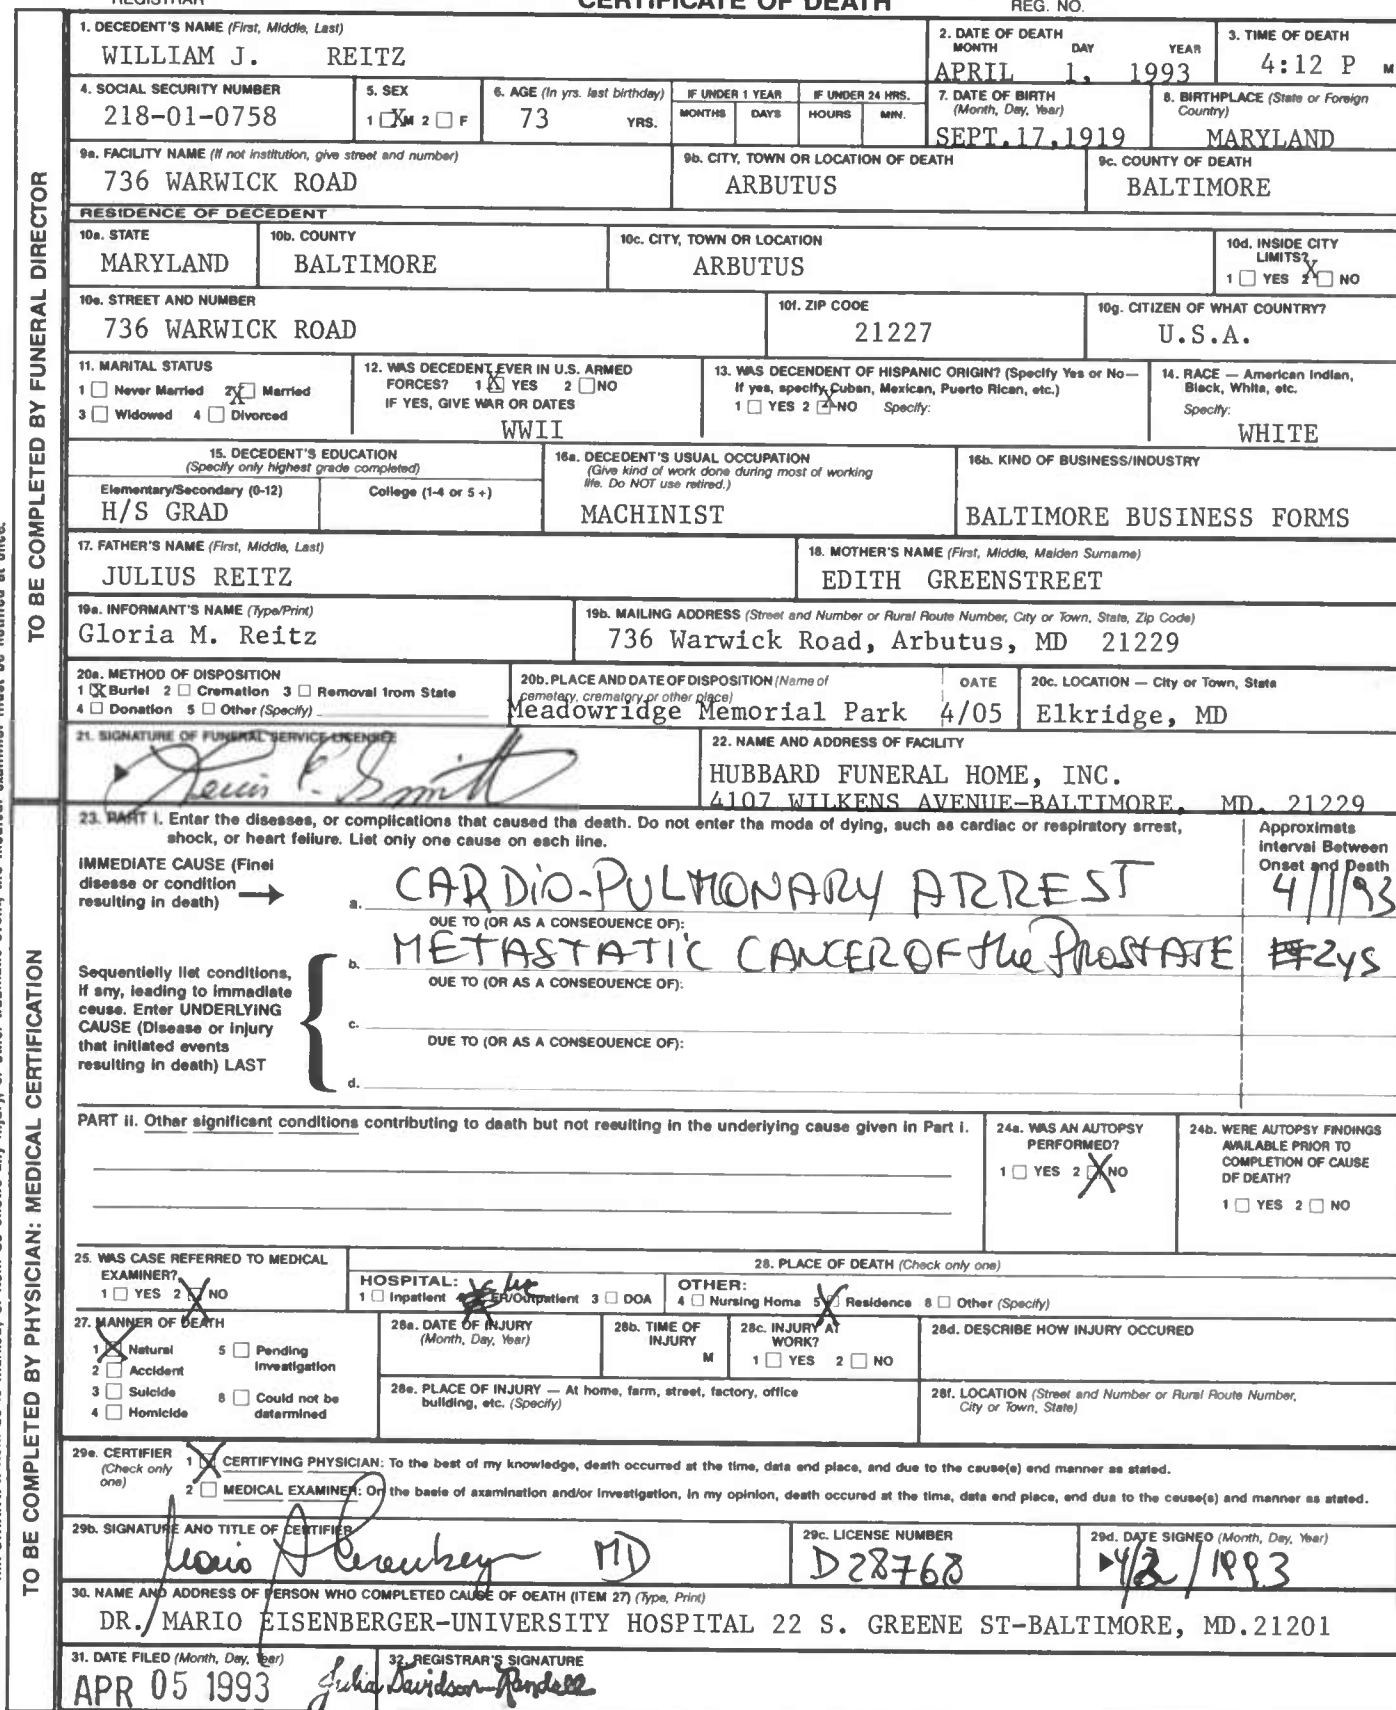 REGISTRAR
CERTIFICATE OF DEATH
REG. NO.
1. DECEDENT'S NAME (First, Middle, Last)
WILLIAM J. REITZ
2. DATE OF DEATH
MONTH DAY YEAR
APRIL 1, 1993
3. TIME OF DEATH
4:12 P M
4. SOCIAL SECURITY NUMBER
218-01-0758
5. SEX
1 X M 2 F
6. AGE (In yrs. last birthday)
73 YRS.
IF UNDER 1 YEAR
MONTHS DAYS
IF UNDER 24 HRS.
HOURS MIN.
7. DATE OF BIRTH
(Month, Day, Year)
SEPT.17,1919
8. BIRTHPLACE (State or Foreign
Country)
MARYLAND
9a. FACILITY NAME (If not institution, give street and number)
736 WARWICK ROAD
9b. CITY, TOWN OR LOCATION OF DEATH
ARBUTUS
9c. COUNTY OF DEATH
BALTIMORE
RESIDENCE OF DECEDENT
10a. STATE
MARYLAND
10b. COUNTY
BALTIMORE
10c. CITY, TOWN OR LOCATION
ARBUTUS
10d. INSIDE CITY
LIMITS?
1 YES 2 X NO
10e. STREET AND NUMBER
736 WARWICK ROAD
10f. ZIP CODE
21227
10g. CITIZEN OF WHAT COUNTRY?
U.S.A.
11. MARITAL STATUS
1 Never Married 2 X Married
3 Widowed 4 Divorced
12. WAS DECEDENT EVER IN U.S. ARMED
FORCES? 1 X YES 2 NO
IF YES, GIVE WAR OR DATES
WWII
13. WAS DECENDENT OF HISPANIC ORIGIN? (Specify Yes or No—
If yes, specify Cuban, Mexican, Puerto Rican, etc.)
1 YES 2 X NO Specify:
14. RACE — American Indian,
Black, White, etc.
Specify:
WHITE
15. DECEDENT'S EDUCATION
(Specify only highest grade completed)
Elementary/Secondary (0-12) College (1-4 or 5 +)
H/S GRAD
16a. DECEDENT'S USUAL OCCUPATION
(Give kind of work done during most of working
life. Do NOT use retired.)
MACHINIST
16b. KIND OF BUSINESS/INDUSTRY
BALTIMORE BUSINESS FORMS
17. FATHER'S NAME (First, Middle, Last)
JULIUS REITZ
18. MOTHER'S NAME (First, Middle, Maiden Surname)
EDITH GREENSTREET
19a. INFORMANT'S NAME (Type/Print)
Gloria M. Reitz
19b. MAILING ADDRESS (Street and Number or Rural Route Number, City or Town, State, Zip Code)
736 Warwick Road, Arbutus, MD 21229
20a. METHOD OF DISPOSITION
1 X Burial 2 Cremation 3 Removal from State
4 Donation 5 Other (Specify)
20b. PLACE AND DATE OF DISPOSITION (Name of
cemetery, crematory or other place)
DATE
Meadowridge Memorial Park 4/05
20c. LOCATION — City or Town, State
Elkridge, MD
21. SIGNATURE OF FUNERAL SERVICE LICENSEE
Smith
22. NAME AND ADDRESS OF FACILITY
HUBBARD FUNERAL HOME, INC.
4107 WILKENS AVENUE-BALTIMORE, MD. 21229
TO BE COMPLETED BY FUNERAL DIRECTOR
23. PART I. Enter the diseases, or complications that caused the death. Do not enter the mode of dying, such as cardiac or respiratory arrest,
shock, or heart failure. List only one cause on each line.
Approximate
Interval Between
Onset and Death
IMMEDIATE CAUSE (Final
disease or condition
resulting in death)
a. CARDIO-PULMONARY ARREST 4/1/93
DUE TO (OR AS A CONSEQUENCE OF):
b. METASTATIC CANCER OF the PROSTATE 2ys
DUE TO (OR AS A CONSEQUENCE OF):
Sequentially list conditions,
if any, leading to immediate
cause. Enter UNDERLYING
CAUSE (Disease or injury
that initiated events
resulting in death) LAST
c.
DUE TO (OR AS A CONSEQUENCE OF):
d.
PART II. Other significant conditions contributing to death but not resulting in the underlying cause given in Part I.
24a. WAS AN AUTOPSY
PERFORMED?
1 YES 2 X NO
24b. WERE AUTOPSY FINDINGS
AVAILABLE PRIOR TO
COMPLETION OF CAUSE
OF DEATH?
1 YES 2 NO
25. WAS CASE REFERRED TO MEDICAL
EXAMINER?
1 YES 2 X NO
28. PLACE OF DEATH (Check only one)
HOSPITAL:
1 Inpatient ER/Outpatient 3 DOA
OTHER:
4 Nursing Home 5 X Residence 8 Other (Specify)
27. MANNER OF DEATH
1 X Natural 5 Pending
Investigation
2 Accident
3 Suicide 8 Could not be
determined
4 Homicide
28a. DATE OF INJURY
(Month, Day, Year)
28b. TIME OF
INJURY
M
28c. INJURY AT
WORK?
1 YES 2 NO
28d. DESCRIBE HOW INJURY OCCURED
28e. PLACE OF INJURY — At home, farm, street, factory, office
building, etc. (Specify)
28f. LOCATION (Street and Number or Rural Route Number,
City or Town, State)
29a. CERTIFIER
(Check only
one)
1 X CERTIFYING PHYSICIAN: To the best of my knowledge, death occurred at the time, data end place, and due to the cause(e) end manner as stated.
2 MEDICAL EXAMINER: On the basis of examination and/or investigation, in my opinion, death occured at the time, data end place, end due to the cause(s) and manner as stated.
29b. SIGNATURE AND TITLE OF CERTIFIER
Mario Eisenberger MD
29c. LICENSE NUMBER
D28768
29d. DATE SIGNED (Month, Day, Year)
4/2/1993
30. NAME AND ADDRESS OF PERSON WHO COMPLETED CAUSE OF DEATH (ITEM 27) (Type, Print)
DR. MARIO EISENBERGER-UNIVERSITY HOSPITAL 22 S. GREENE ST-BALTIMORE, MD.21201
31. DATE FILED (Month, Day, Year)
APR 05 1993
32. REGISTRAR'S SIGNATURE
Julia Davidson-Randall
TO BE COMPLETED BY PHYSICIAN: MEDICAL CERTIFICATION